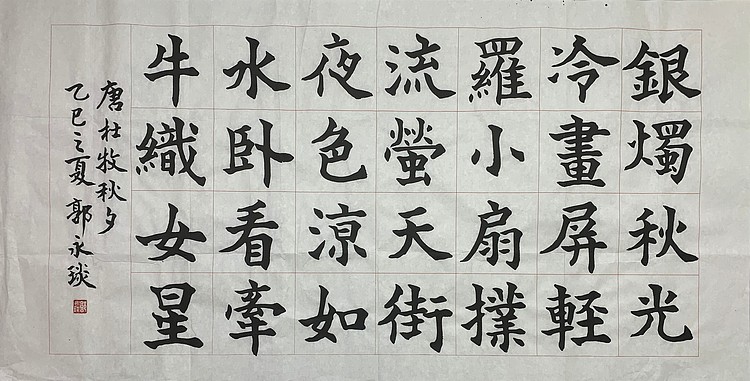 銀燭秋光
冷畫屏輕
羅小扇撲
流螢天街
夜色涼如
水臥看牽
牛織女星
唐杜牧秋夕
乙巳之夏郭永琰